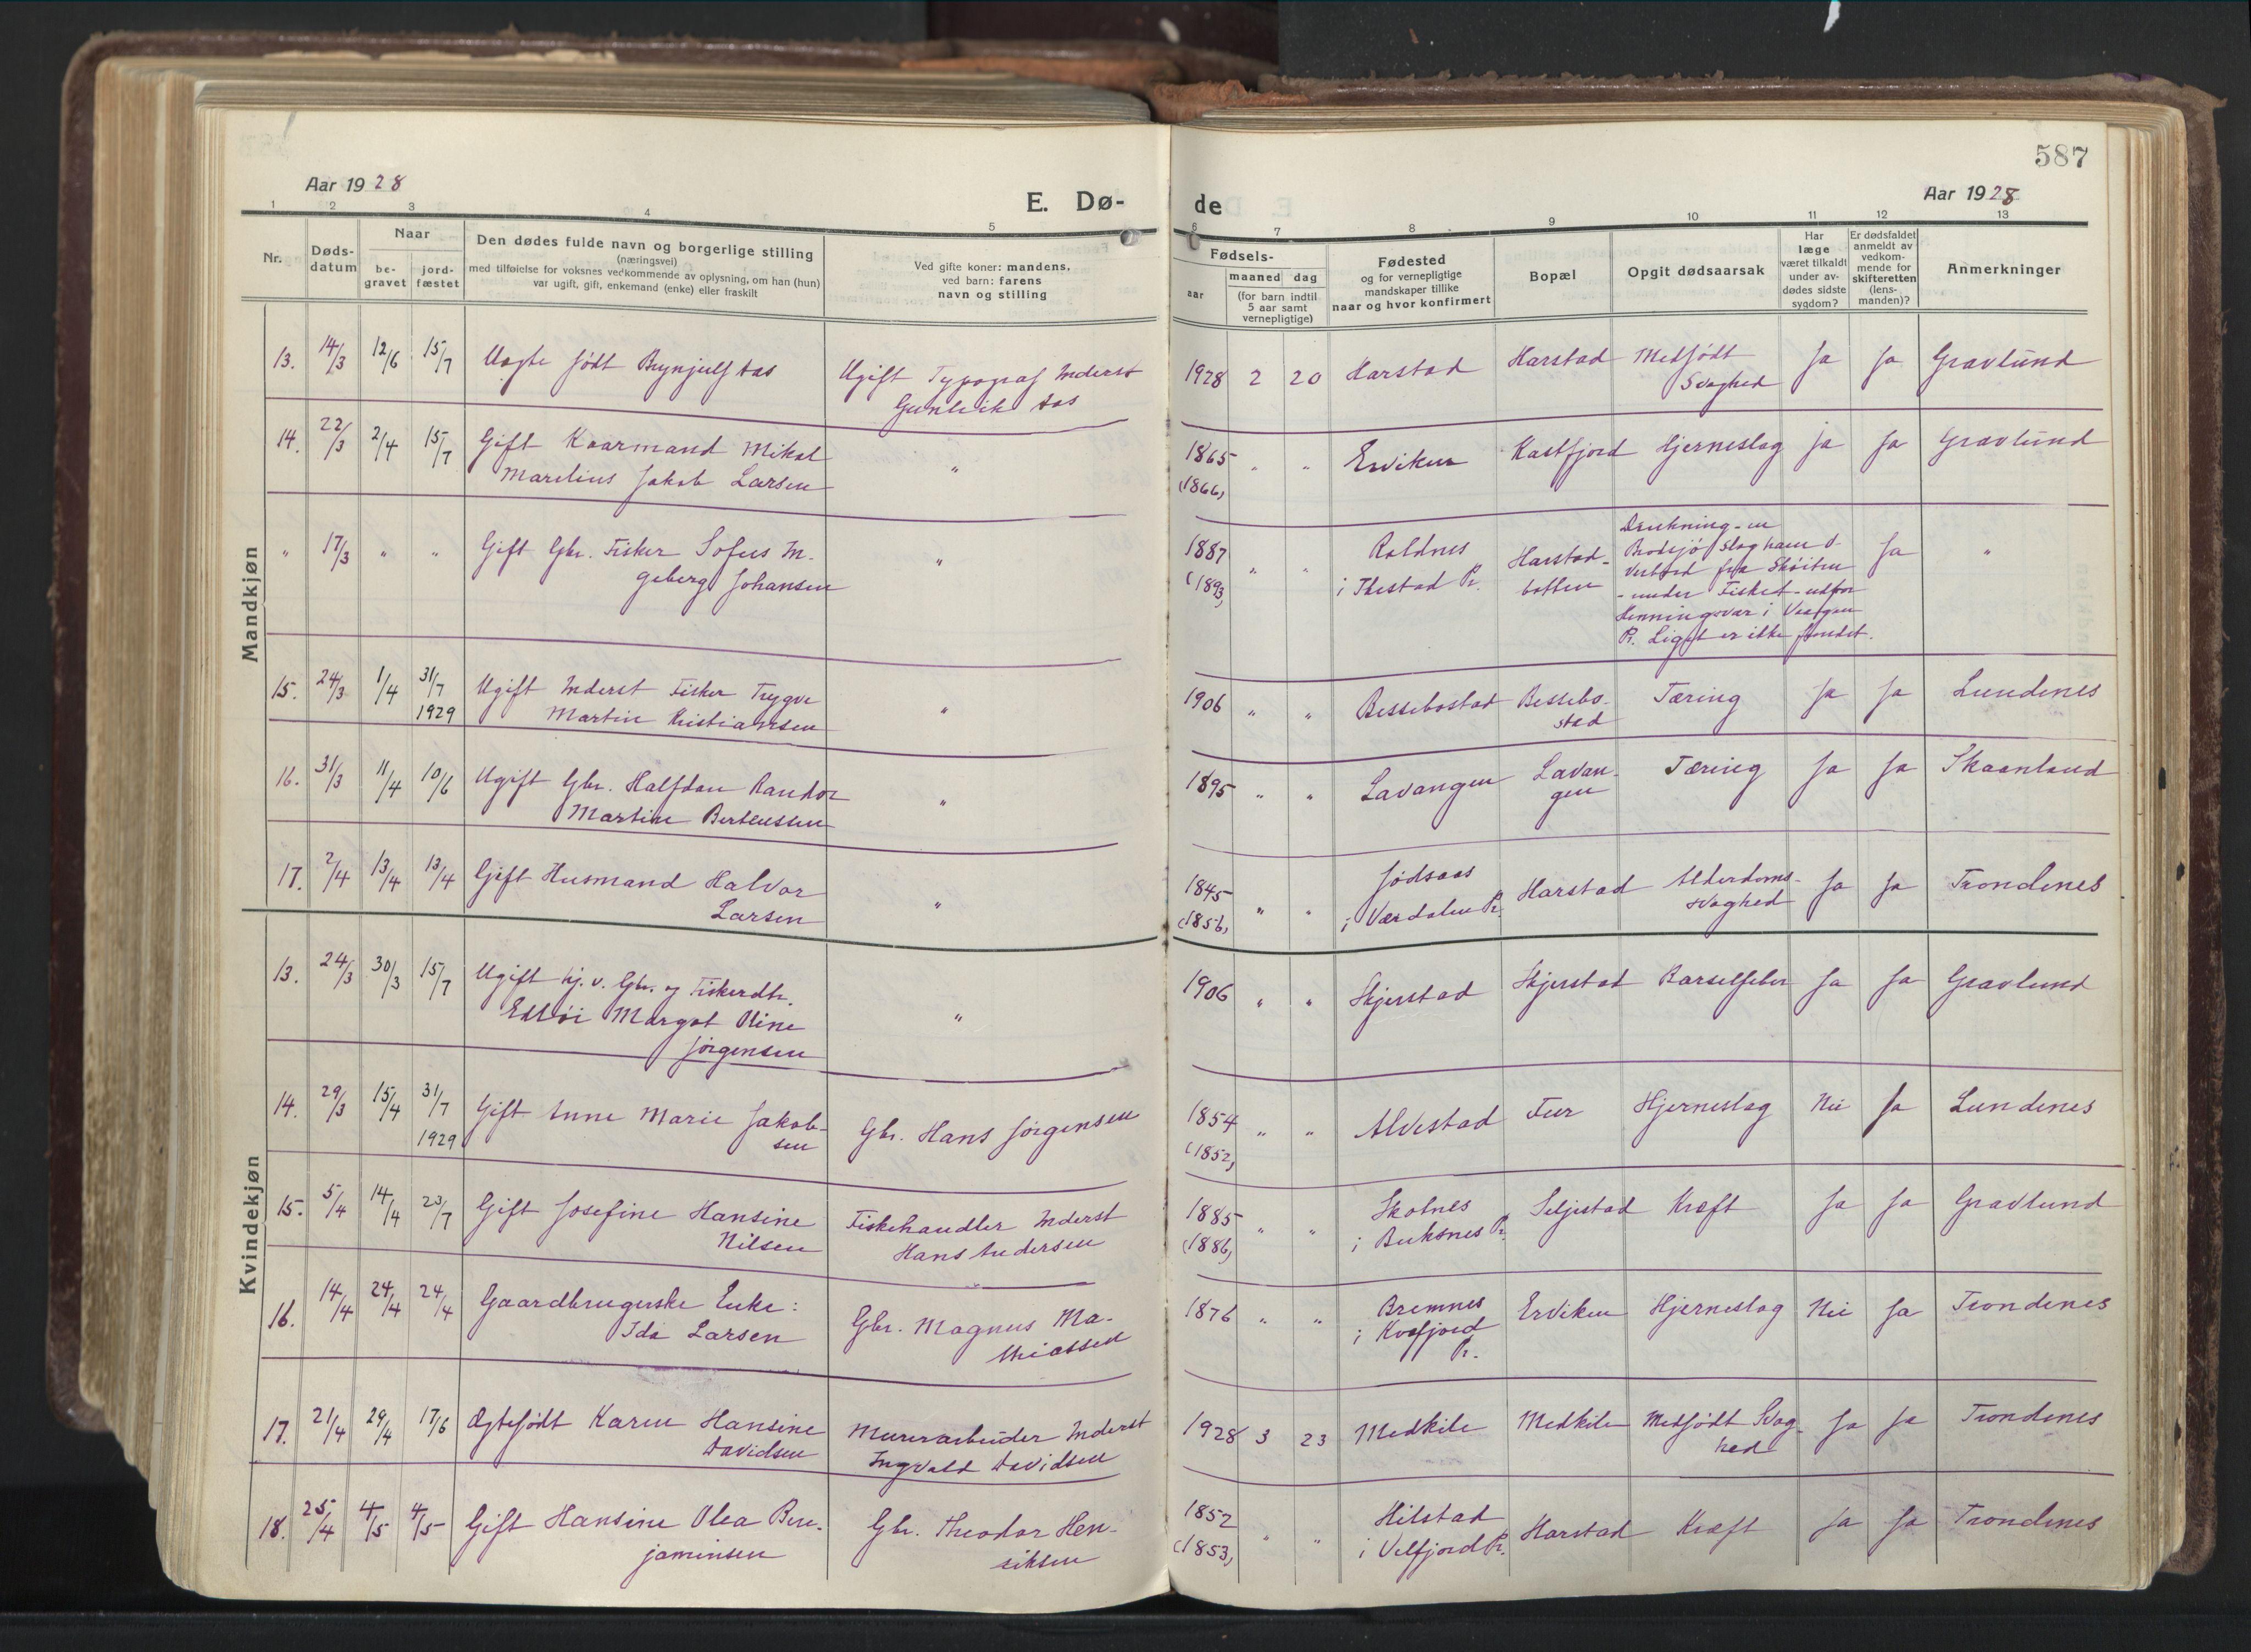 587
Aar 1928
E. Dø-
de
Aar 1928
1 2 3 4 5
6 7 8 9 10 11 12 13
Nr.
Døds-
datum
Naar
be-
gravet
jord-
fæstet
Den dødes fulde navn og borgerlige stilling
(næringsvei)
med tilføielse for voksnes vedkommende av oplysning, om han (hun)
var ugift, gift, enkemand (enke) eller fraskilt
Ved gifte koner: mandens,
ved barn: farens
navn og stilling
Fødsels-
aar
maaned dag
(for barn indtil
5 aar samt
vernepligtige)
Fødested
og for vernepligtige
mandskaper tillike
naar og hvor konfirmert
Bopæl
Opgit dødsaarsak
Har
læge
været tilkaldt
under av-
dødes sidste
sygdom?
Er dødsfaldet
anmeldt av
vedkom-
mende for
skifteretten
(lens-
manden)?
Anmerkninger
Mandkjøn
13. 14/3 12/6 15/7 Uegte født Brynjulf Aas
Ugift Typograf Inderst
Gunleik Aas
1928 2 20 Harstad Harstad Medfødt
Svaghed
Ja Ja Gravlund
14. 22/3 2/4 15/7 Gift Kaarmand Mikal
Marelius Jakob Larsen
"
1865
(1866)
" " Erviken Kastfjord Hjerneslag Ja Ja Gravlund
" 17/3 " " Gift Gbr. Fisker Sofus In-
geberg Johansen
"
1887
(1893)
" " Roldnes
i Ibestad Pr.
Harstad-
botten
Drukning - en
Brodsjø slog ham o-
verbord fra Skøiten
- under Fisket - udfor
Henningsvær i Vaagan
Pr. Liget er ikke fundet.
Ja "
15. 24/3 1/4 31/7
1929
Ugift Inderst Fisker Trygve
Martin Kristiansen
"
1906 " " Bessebostad Bessebo-
stad
Tæring Ja Ja Lundenes
16. 31/3 11/4 10/6 Ugift Gbr. Halfdan Randor
Martin Berteussen
"
1895 " " Lavangen Lavan-
gen
Tæring Ja Ja Skaanland
17. 2/4 13/4 13/4 Gift Husmand Halvor
Larsen
"
1845
(1856)
" " Jødsaas
i Værdalen Pr.
Harstad Alderdoms-
svaghed
Ja Ja Trondenes
Kvindekjøn
13. 24/3 30/3 15/7 Ugift hj. v. Gbr. og Fiskerdtr.
Margot Oline
Jørgensen
"
1906 " " Skjerstad Skjerstad Barselfeber Ja Ja Gravlund
14. 29/3 15/4 31/7
1929
Gift Anne Marie Jakob-
sen
Gbr. Hans Jørgensen
1854
(1852)
" " Alvestad Hjerneslag Nei Ja Lundenes
15. 5/4 14/4 23/7 Gift Josefine Hansine
Nilsen
Fiskehandler Inderst
Hans Andersen
1885
(1886)
" " Skotnes
i Buksnes Pr.
Seljestad Kræft Ja Ja Gravlund
16. 14/4 24/4 24/4 Gaardbrugerske Enke:
Ida Larsen
Gbr. Magnus Ma-
thiassen
1876 " " Bremnes
i Kvæfjord
Pr.
Erviken Hjerneslag Nei Ja Trondenes
17. 21/4 29/4 17/6 Ægtefødt Karen Hansine
Davidsen
Murerarbeider Inderst
Ingvald Davidsen
1928 3 23 Medkile Medkile Medfødt Svag-
hed
Ja Ja Trondenes
18. 25/4 4/5 4/5 Gift Hansine Olea Ben-
jaminsen
Gbr. Theodor Hen-
riksen
1852
(1853)
" " Hilstad
i Velfjord Pr.
Harstad Kræft Ja Ja Trondenes